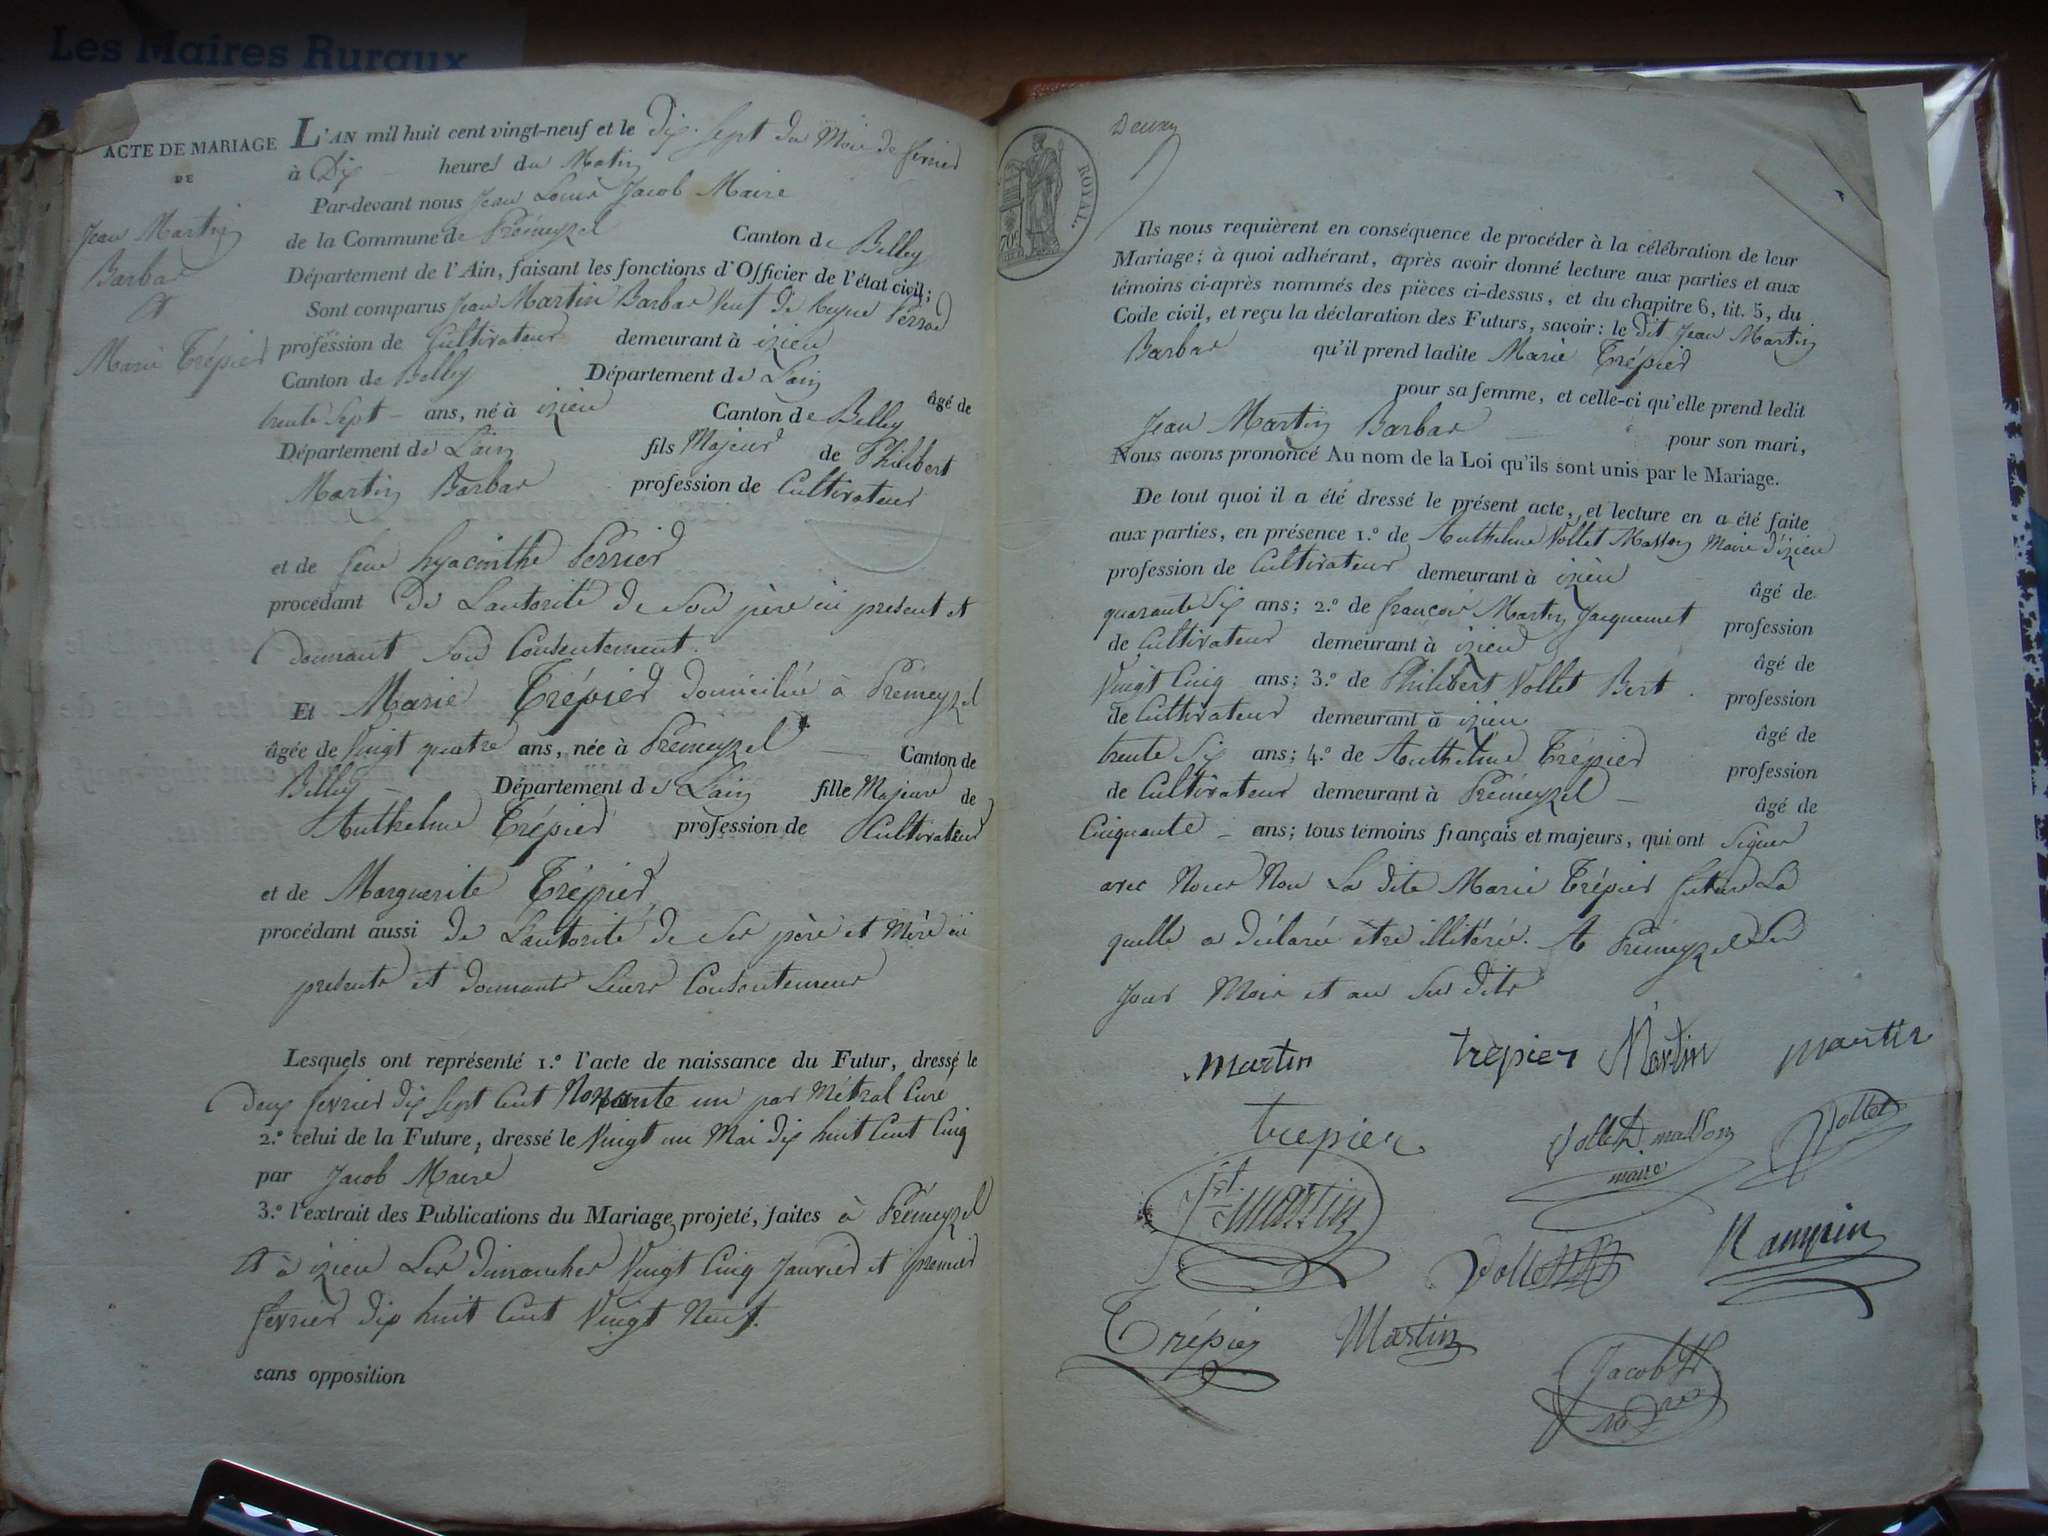 Les Maires Ruraux
ACTE DE MARIAGE
DE
Jean Martin
Barbar
et
Marie Trépier
L'AN mil huit cent vingt-neuf et le dix sept du Mois de fevrier
à Dix heures du Matin
Par-devant nous Jean Louis Jacob Maire
de la Commune de Prémeyzel Canton de Belley
Département de l'Ain, faisant les fonctions d'Officier de l'état civil;
Sont comparus Jean Martin Barbar veuf de
profession de Cultivateur demeurant à izieu
Canton de Belley Département de Lain âgé de
trente sept ans, né à izieu Canton de Belley
Département de Lain fils Majeur de Philibert
Martin Barbar profession de Cultivateur
et de feue hyacinthe Perrier
procédant de Lautorité de Son père ici présent et
donnant Son Consentement.
Et Marie Trépier domiciliée à Prémeyzel
âgée de vingt quatre ans, née à Prémeyzel Canton de
Belley Département de Lain fille Majeure de
Anthelme Trépier profession de Cultivateur
et de Marguerite Trépier
procédant aussi de Lautorité de Ses père et Mère ici
présents et donnants Leurs Consentement
Lesquels ont représenté 1.º l'acte de naissance du Futur, dressé le
deux fevrier dix Sept Cent Nonante un par Métral Curé
2.º celui de la Future, dressé le vingt un Mai dix huit Cent Cinq
par Jacob Maire
3.º l'extrait des Publications du Mariage projeté, faites à Prémeyzel
et à izieu Les dimanches vingt Cinq Janvier et premier
fevrier dix huit Cent vingt Neuf.
sans opposition
ROYAL.
70c
Deux
Ils nous requièrent en conséquence de procéder à la célébration de leur
Mariage; à quoi adhérant, après avoir donné lecture aux parties et aux
témoins ci-après nommés des pièces ci-dessus, et du chapitre 6, tit. 5, du
Code civil, et reçu la déclaration des Futurs, savoir: le dit Jean Martin
Barbar qu'il prend ladite Marie Trépier
pour sa femme, et celle-ci qu'elle prend ledit
Jean Martin Barbar pour son mari,
Nous avons prononcé Au nom de la Loi qu'ils sont unis par le Mariage.
De tout quoi il a été dressé le présent acte, et lecture en a été faite
aux parties, en présence 1.º de Anthelme Vollet Masson Maire d'izieu
profession de Cultivateur demeurant à izieu âgé de
quarante Six ans; 2.º de françois Martin Jacquemet profession
de Cultivateur demeurant à izieu âgé de
Vingt Cinq ans; 3.º de Philibert Vollet Bert profession
de Cultivateur demeurant à izieu âgé de
trente Six ans; 4.º de Anthelme Trépier profession
de Cultivateur demeurant à Prémeyzel âgé de
Cinquante ans; tous témoins français et majeurs, qui ont Signer
avec Nous Non La dite Marie Trépier future La
quelle a déclarée être illitérée. A Prémeyzel Les
Jour Mois et an Sus dits
martin trepier Martin martin
trepier Vollet masson Vollet
maire
martin
Vollet Rampin
Trépier Martin
Jacob